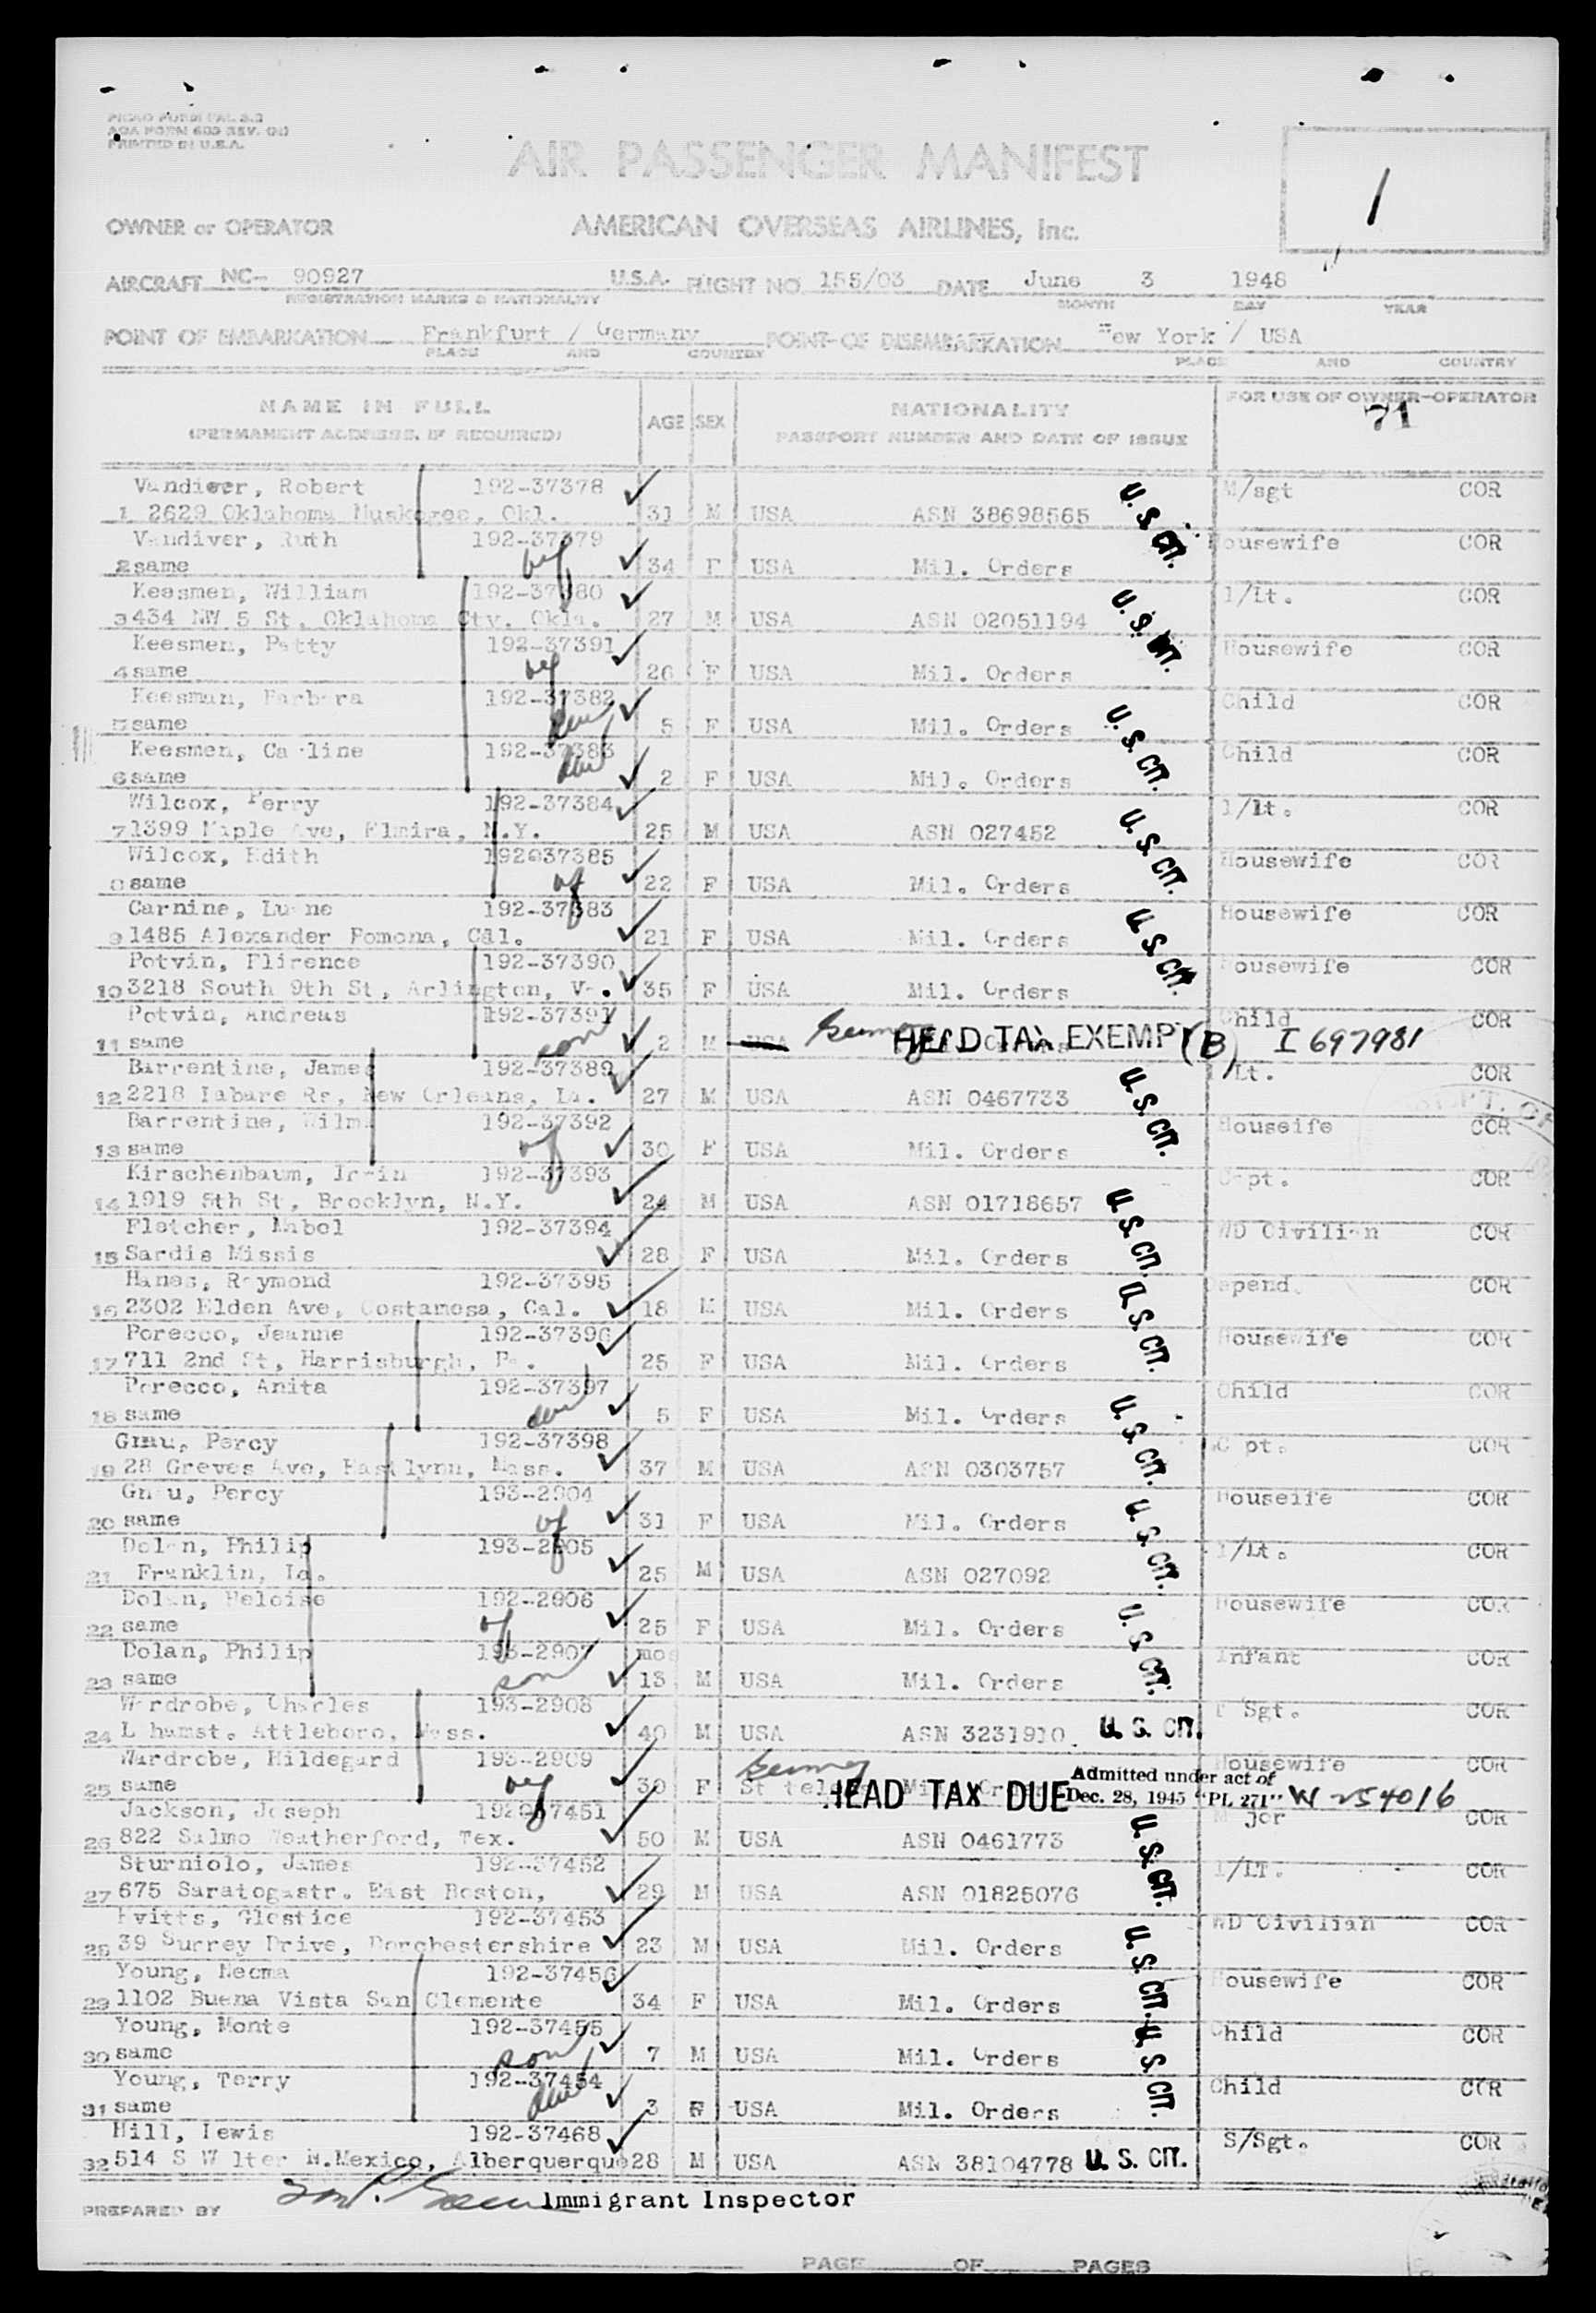 PICAO FORM PAL 3.2
AOA FORM 603 REV.
PRINTED IN U.S.A.
AIR PASSENGER MANIFEST
1
OWNER or OPERATOR AMERICAN OVERSEAS AIRLINES, Inc.
AIRCRAFT NC- 90927 U.S.A. FLIGHT NO 155/03 DATE June 3 1948
REGISTRATION MARKS & NATIONALITY MONTH DAY YEAR
POINT OF EMBARKATION Frankfurt / Germany POINT OF DISEMBARKATION New York / USA
PLACE AND COUNTRY PLACE AND COUNTRY
NAME IN FULL AGE SEX NATIONALITY FOR USE OF OWNER-OPERATOR
(PERMANENT ADDRESS, IF REQUIRED) PASSPORT NUMBER AND DATE OF ISSUE 71
Vandiver, Robert 192-37378 M/sgt COR
1 2629 Oklahoma Muskogee, Okl. 31 M USA ASN 38698565 U. S. CIT.
Vandiver, Ruth 192-37379 Housewife COR
2 same 34 F USA Mil. Orders
Keesmen, William 192-37380 1/Lt. COR
3 434 NW 5 St. Oklahoma Cty. Okla. 27 M USA ASN 02051194 U. S. CIT.
Keesmen, Patty 192-37391 Housewife COR
4 same 26 F USA Mil. Orders
Keesman, Barbara 192-37382 Child COR
5 same 5 F USA Mil. Orders U. S. CIT.
Keesmen, Caroline 192-37383 Child COR
6 same 2 F USA Mil. Orders
Wilcox, Perry 192-37384 1/Lt. COR
7 1399 Maple Ave, Elmira, N.Y. 25 M USA ASN 027452 U. S. CIT.
Wilcox, Edith 192@37385 Housewife COR
8 same 22 F USA Mil. Orders
Carnine, Luane 192-37383 Housewife COR
9 1485 Alexander Pomona, Cal. 21 F USA Mil. Orders U. S. CIT.
Potvin, Flirence 192-37390 Housewife COR
10 3218 South 9th St, Arlington, Va. 35 F USA Mil. Orders
Potvin, Andreas 192-37391 Child COR
11 same son 2 M USA Germany HEAD TAX EXEMPT (B) I 697981
Barrentine, James 192-37389 1/Lt. COR
12 2218 Labare Rs, New Orleans, La. 27 M USA ASN 0467733 U. S. CIT.
Barrentine, Wilma 192-37392 Houseife COR
13 same 30 F USA Mil. Orders
Kirschenbaum, Irwin 192-37393 Capt. COR
14 1919 5th St, Brooklyn, N.Y. 24 M USA ASN 01718657 U. S. CIT.
Fletcher, Mabel 192-37394 WD Civilian COR
15 Sardis Missis 28 F USA Mil. Orders
Hanes, Raymond 192-37395 Depend. COR
16 2302 Elden Ave, Costamesa, Cal. 18 M USA Mil. Orders U. S. CIT.
Porecco, Jeanne 192-37396 Housewife COR
17 711 2nd St, Harrisburgh, Pa. 25 F USA Mil. Orders
Porecco, Anita 192-37397 Child COR
18 same 5 F USA Mil. Orders U. S. CIT.
Gnau, Percy 192-37398 Capt. COR
19 28 Greves Ave, Eastlynn, Mass. 37 M USA ASN 0303757
Gnau, Percy 193-2904 Houseife COR
20 same 31 F USA Mil. Orders U. S. CIT.
Dolan, Philip 193-2905 1/Lt. COR
21 Franklin, La. 25 M USA ASN 027092
Dolan, Heloise 192-2906 Housewife COR
22 same 25 F USA Mil. Orders U. S. CIT.
Dolan, Philip 193-2907 mos Infant COR
23 same son 13 M USA Mil. Orders
Wardrobe, Charles 193-2908 T Sgt. COR
24 L hamst. Attleboro, Mass. 40 M USA ASN 3231910 U. S. CIT.
Wardrobe, Hildegard 193-2909 Germany Housewife COR
25 same 30 F HEAD TAX DUE Admitted under act of
Dec. 28, 1945 "PL 271" W 254016
Jackson, Joseph 192@37451 Major COR
26 822 Salmo Weatherford, Tex. 50 M USA ASN 0461773 U. S. CIT.
Sturniolo, James 192-37452 1/LT. COR
27 675 Saratogastr. East Boston, 29 M USA ASN 01825076
Evitts, Glostice 192-37453 WD Civilian COR
28 39 Surrey Drive, Dorchestershire 23 M USA Mil. Orders U. S. CIT.
Young, Necma 192-37456 Housewife COR
29 1102 Buena Vista San Clemente 34 F USA Mil. Orders
Young, Monte 192-37455 Child COR
30 same son 7 M USA Mil. Orders U. S. CIT.
Young, Terry 192-37454 Child COR
31 same 3 F USA Mil. Orders
Hill, Lewis 192-37468 S/Sgt. COR
32 514 S Walter N.Mexico, Alberquerque 28 M USA ASN 38104778 U. S. CIT.
PREPARED BY Immigrant Inspector
PAGE OF PAGES